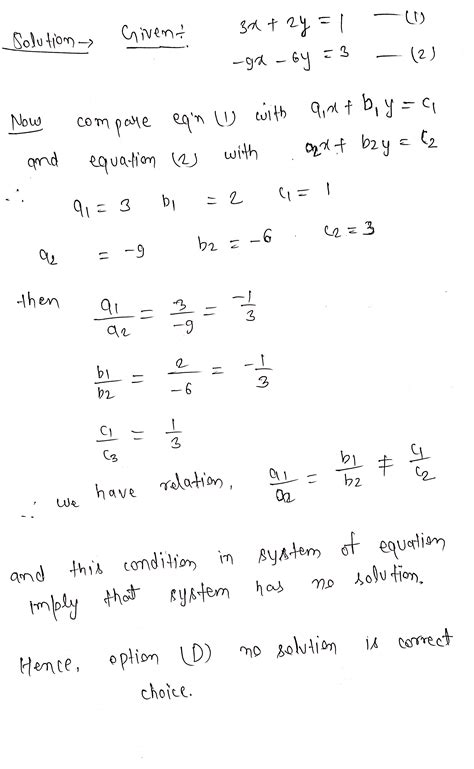 Solution → Given÷ 3x + 2y = 1 — (1)
-9x - 6y = 3 — (2)
Now compare eq'n (1) with a₁x + b₁y = c₁
and equation (2) with a₂x + b₂y = c₂
∴ a₁ = 3 b₁ = 2 c₁ = 1
a₂ = -9 b₂ = -6 c₂ = 3
then a₁/a₂ = 3/-9 = -1/3
b₁/b₂ = 2/-6 = -1/3
c₁/c₃ = 1/3
∴ we have relation, a₁/a₂ = b₁/b₂ ≠ c₁/c₂
and this condition in system of equation
imply that system has no solution.
Hence, option (D) no solution is correct
choice.